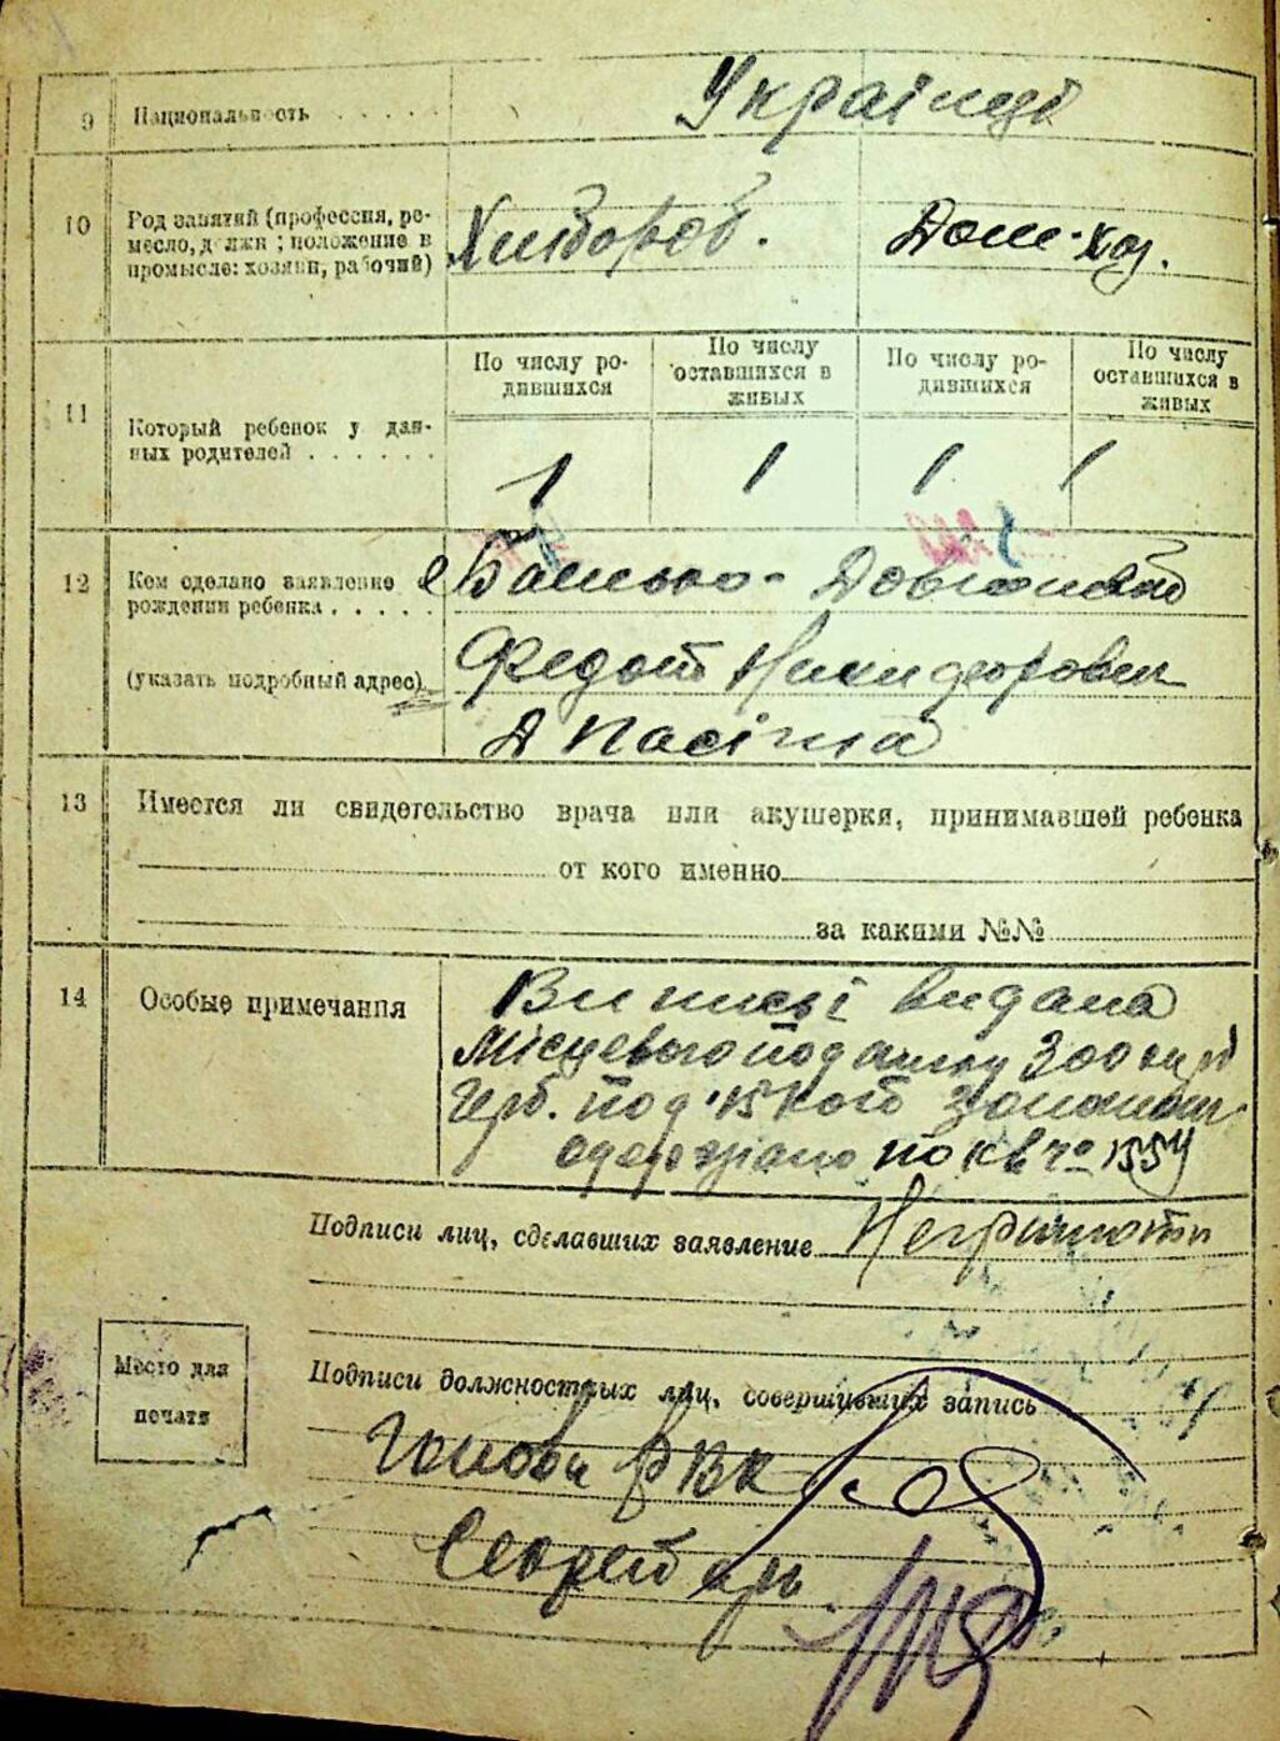 9 Национальность . . . . . Українці
10 Род занятий (профессия, ре-
месло, должн; положение в
промысле: хозяин, рабочий)
Хлібороб. Дом-хоз.
11 Который ребенок у дан-
ных родителей . . . . . .
По числу ро-
дившихся
По числу
оставшихся в
живых
По числу ро-
дившихся
По числу
оставшихся в
живых
1 1 1 1
12 Кем сделано заявление о
рождении ребенка . . . . .
(указать подробный адрес)
Батько-
Федот Никифорович
13 Имеется ли свидетельство врача или акушерки, принимавшей ребенка
от кого именно
за какими №№
14 Особые примечания
Випись видана
Місцевого податку 300
Герб.
одержано по кв № 1554
Подписи лиц, сделавших заявление Неграмотн
Место для
печати
Подписи должностных лиц, совершивших запись
Голова РВК
Секретарь